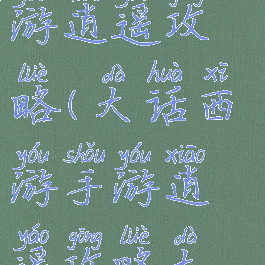 游逍遥攻
lüè dà huà xī
略(大话西
yóu shǒu yóu xiāo
游手游逍
yáo gōng lüè dà
遥攻略大